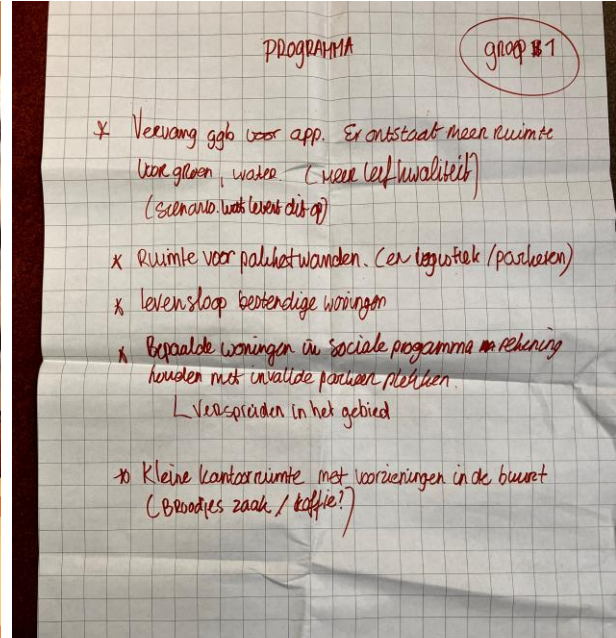 PROGRAMMA
groep 1
* Vervang ggb voor app. Er ontstaat meer ruimte
voor groen, water (meer leefkwaliteit)
(scenario. wat levert dit op)
* Ruimte voor pakketwanden. (en logistiek / parkeren)
* levensloop bestendige woningen
* Bepaalde woningen in sociale progamma rekening
houden met invalide parkeer plekken.
L verspreiden in het gebied
* Kleine kantoorruimte met voorzieningen in de buurt
(Broodjes zaak / koffie?)